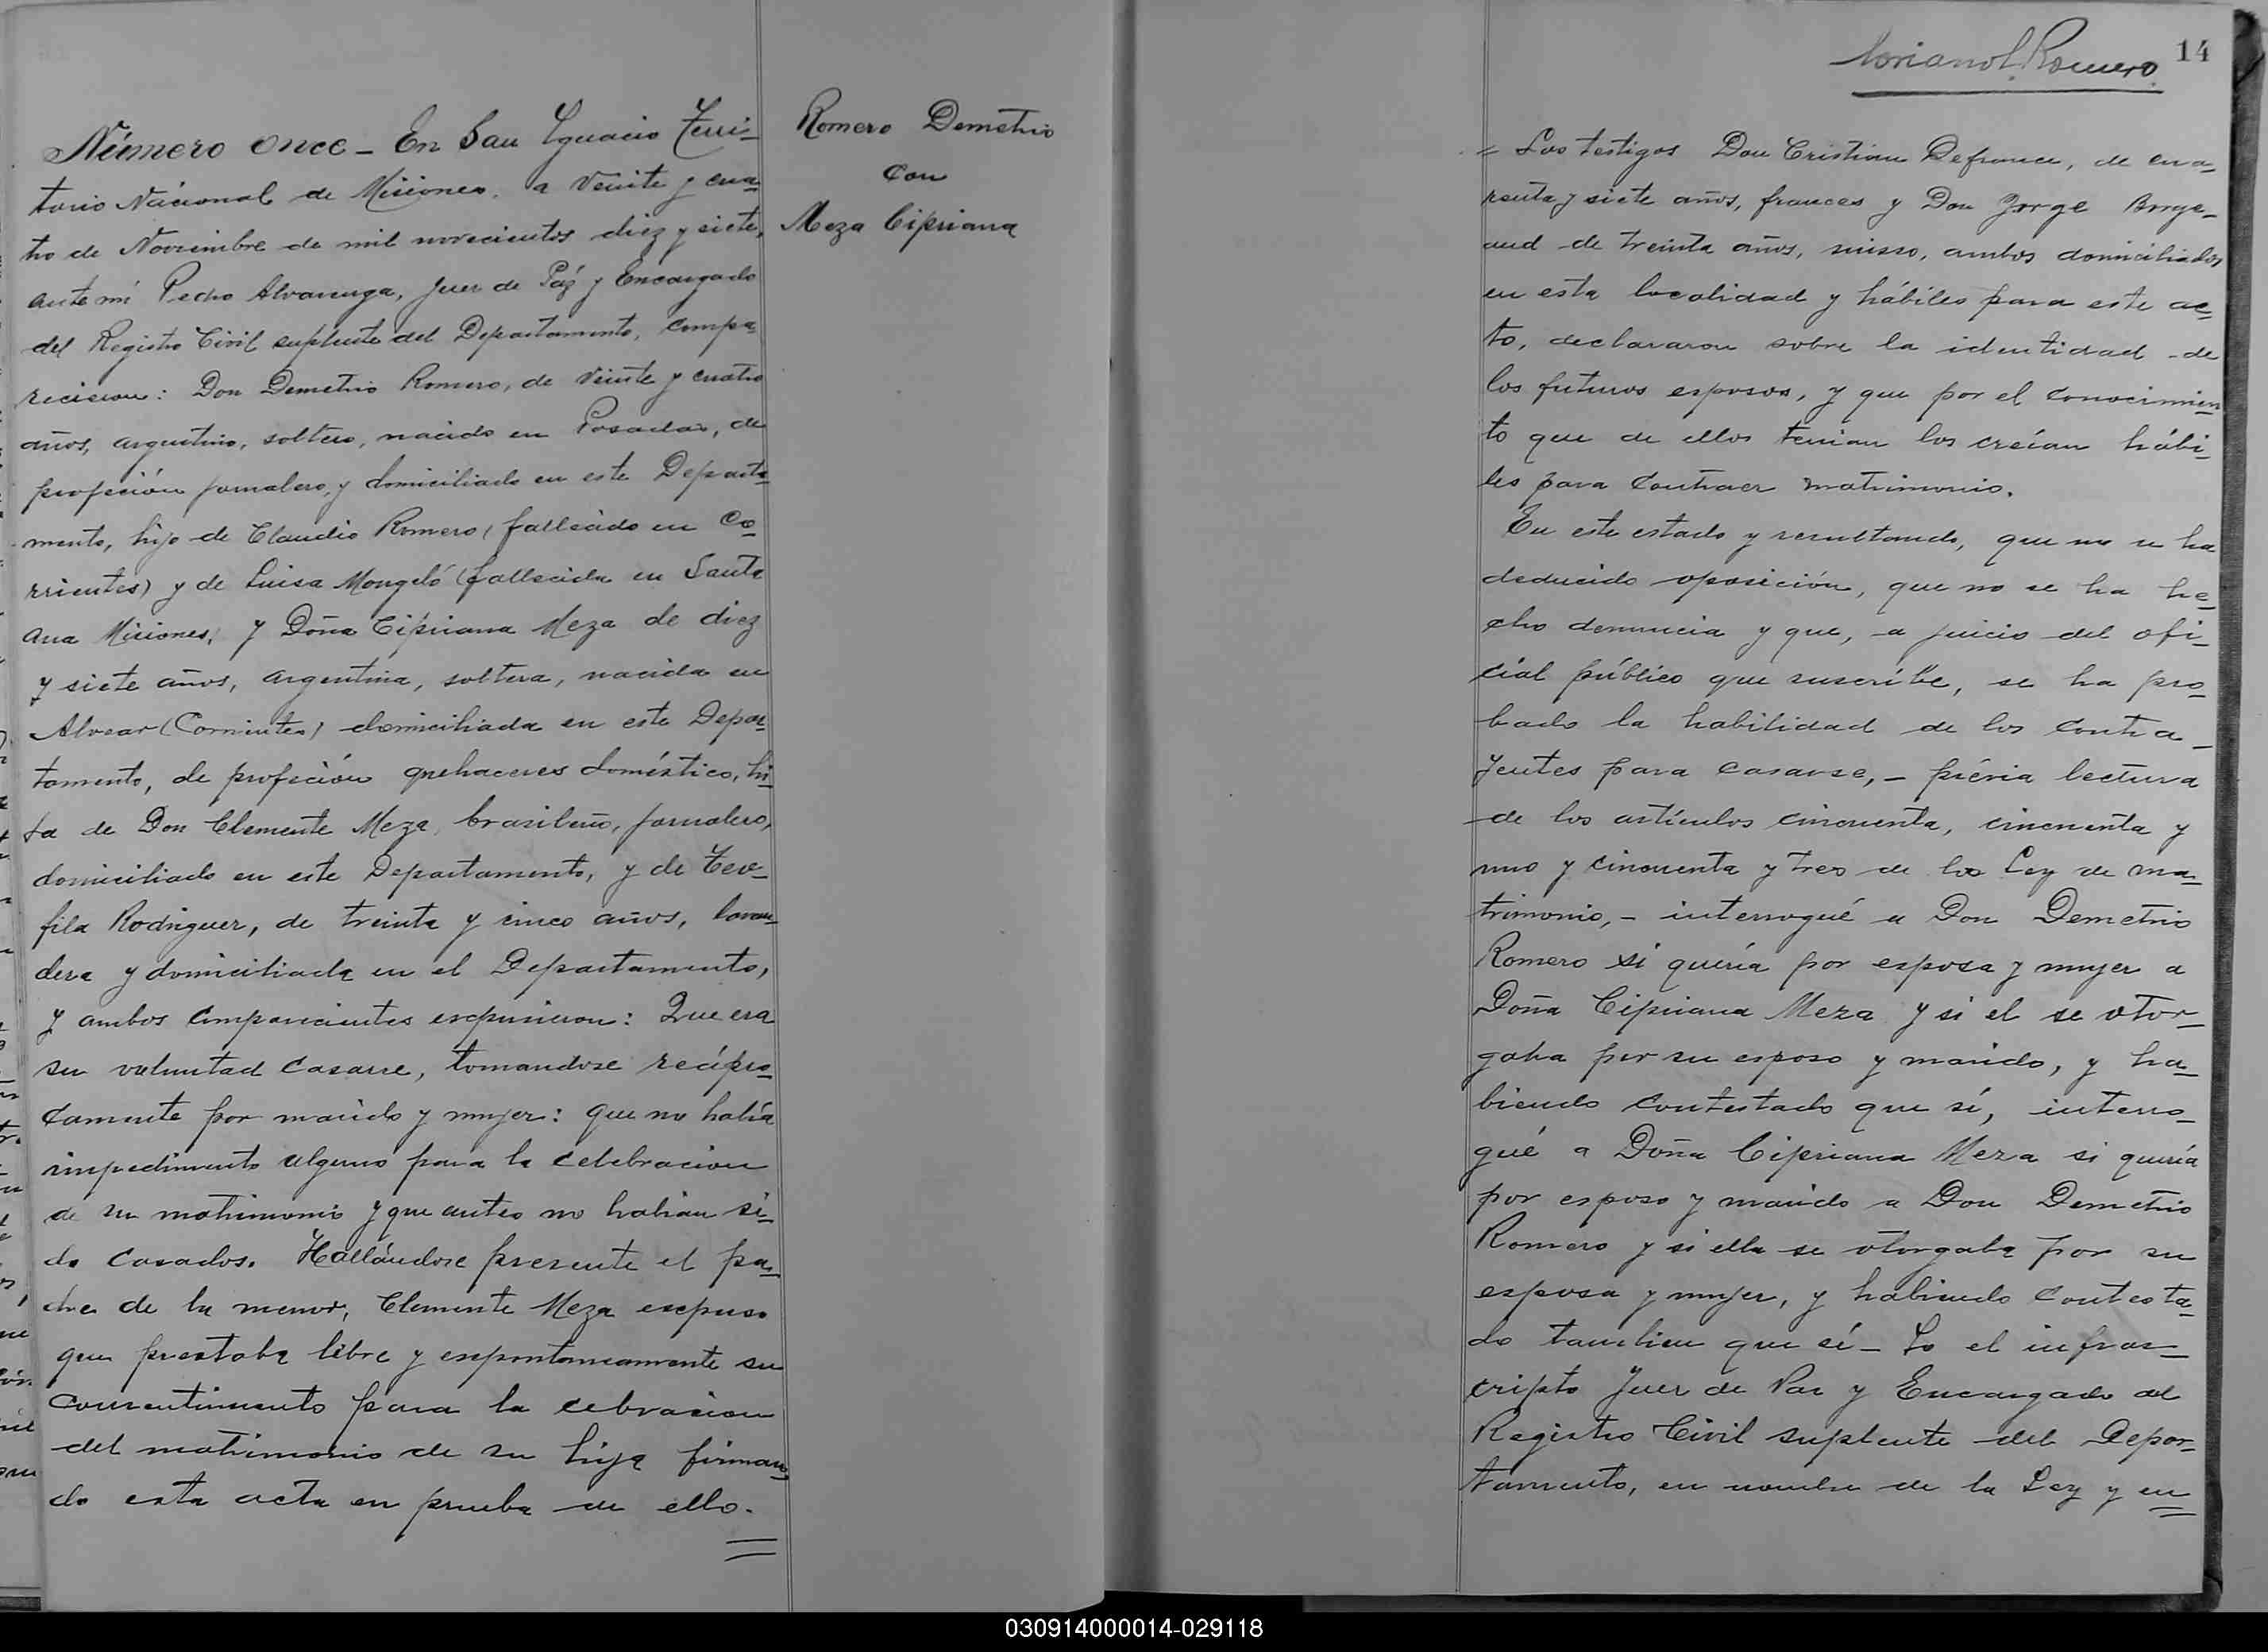 Número once - En San Ygnacio Terri-
torio Nácional de Misiones, a Veinte y cua-
tro de Noviembre de mil novecientos diez y siete,
ante mí Pedro Alvarenga, Juez de Páz y Encargado
del Registro Civil suplente del Departamento, compa-
recieron: Don Demetrio Romero, de Veinte y cuatro
años, argentino, soltero, nacido en Posadas, de
profeción jornalero, y domiciliado en este Departa-
mento, hijo de Claudio Romero (fallecido en Co-
rrientes) y de Luisa Mongeló (fallecida en Santa
Ana Misiones, y Doña Cipriana Meza de diez
y siete años, argentina, soltera, nacida en
Alvear (Corrientes) domiciliada en este Depar-
tamento, de profeción quehaceres doméstico, hi-
ja de Don Clemente Meza, brasileño, jornalero,
domiciliado en este Departamento, y de Teo-
fila Rodriguez, de treinta y cinco años, lavan-
dera y domiciliada en el Departamento,
y ambos comparecientes expusieron: Que era
su voluntad casarse, tomandose recípro-
camente por marido y mujer: que no había
impedimento alguno para la celebracion
de su matrimonio y que antes no habian si-
do casados. Hallándose presente el pa-
dre de la menor, Clemente Meza expuso
que prestaba libre y espontaneamente su
consentimiento para la cebracion
del matrimonio de su hija firman-
do esta acta en prueba de ello.
Romero Demetrio
Con
Meza Cipriana
Romero
14
= Los testigos Don Cristian Defrance, de cua-
renta y siete años, frances y Don Jorge Borge-
aud de treinta años, suisso, ambos domiciliados
en esta localidad y hábiles para este ac-
to, declararon sobre la identidad de
los futuros esposos, y que por el conocimien-
to que de ellos tenian los creían hábi-
les para contraer matrimonio.
En este estado y resultando, que no se ha
deducido oposición, que no se ha he-
cho denuncia y que, a juicio del ofi-
cial público que suscribe, se ha pro-
bado la habilidad de los contra-
yentes para casarse, - prévia lectura
de los artículos cincuenta, cincuenta y
uno y cincuenta y tres de la Ley de ma-
trimonio, - interrogué a Don Demetrio
Romero si quería por esposa y mujer a
Doña Cipriana Meza y si el se otor-
gaba por su esposo y marido, y ha-
biendo contestado que sí, interro-
gué a Doña Cipriana Meza si quería
por esposo y marido a Don Demetrio
Romero y si ella se otorgaba por su
esposa y mujer, y habiendo contesta-
do tambien que sí - Yo el infras-
cripto Juez de Paz y Encargado del
Registro Civil suplente del Depar-
tamento, en nombre de la Ley y en
030914000014-029118